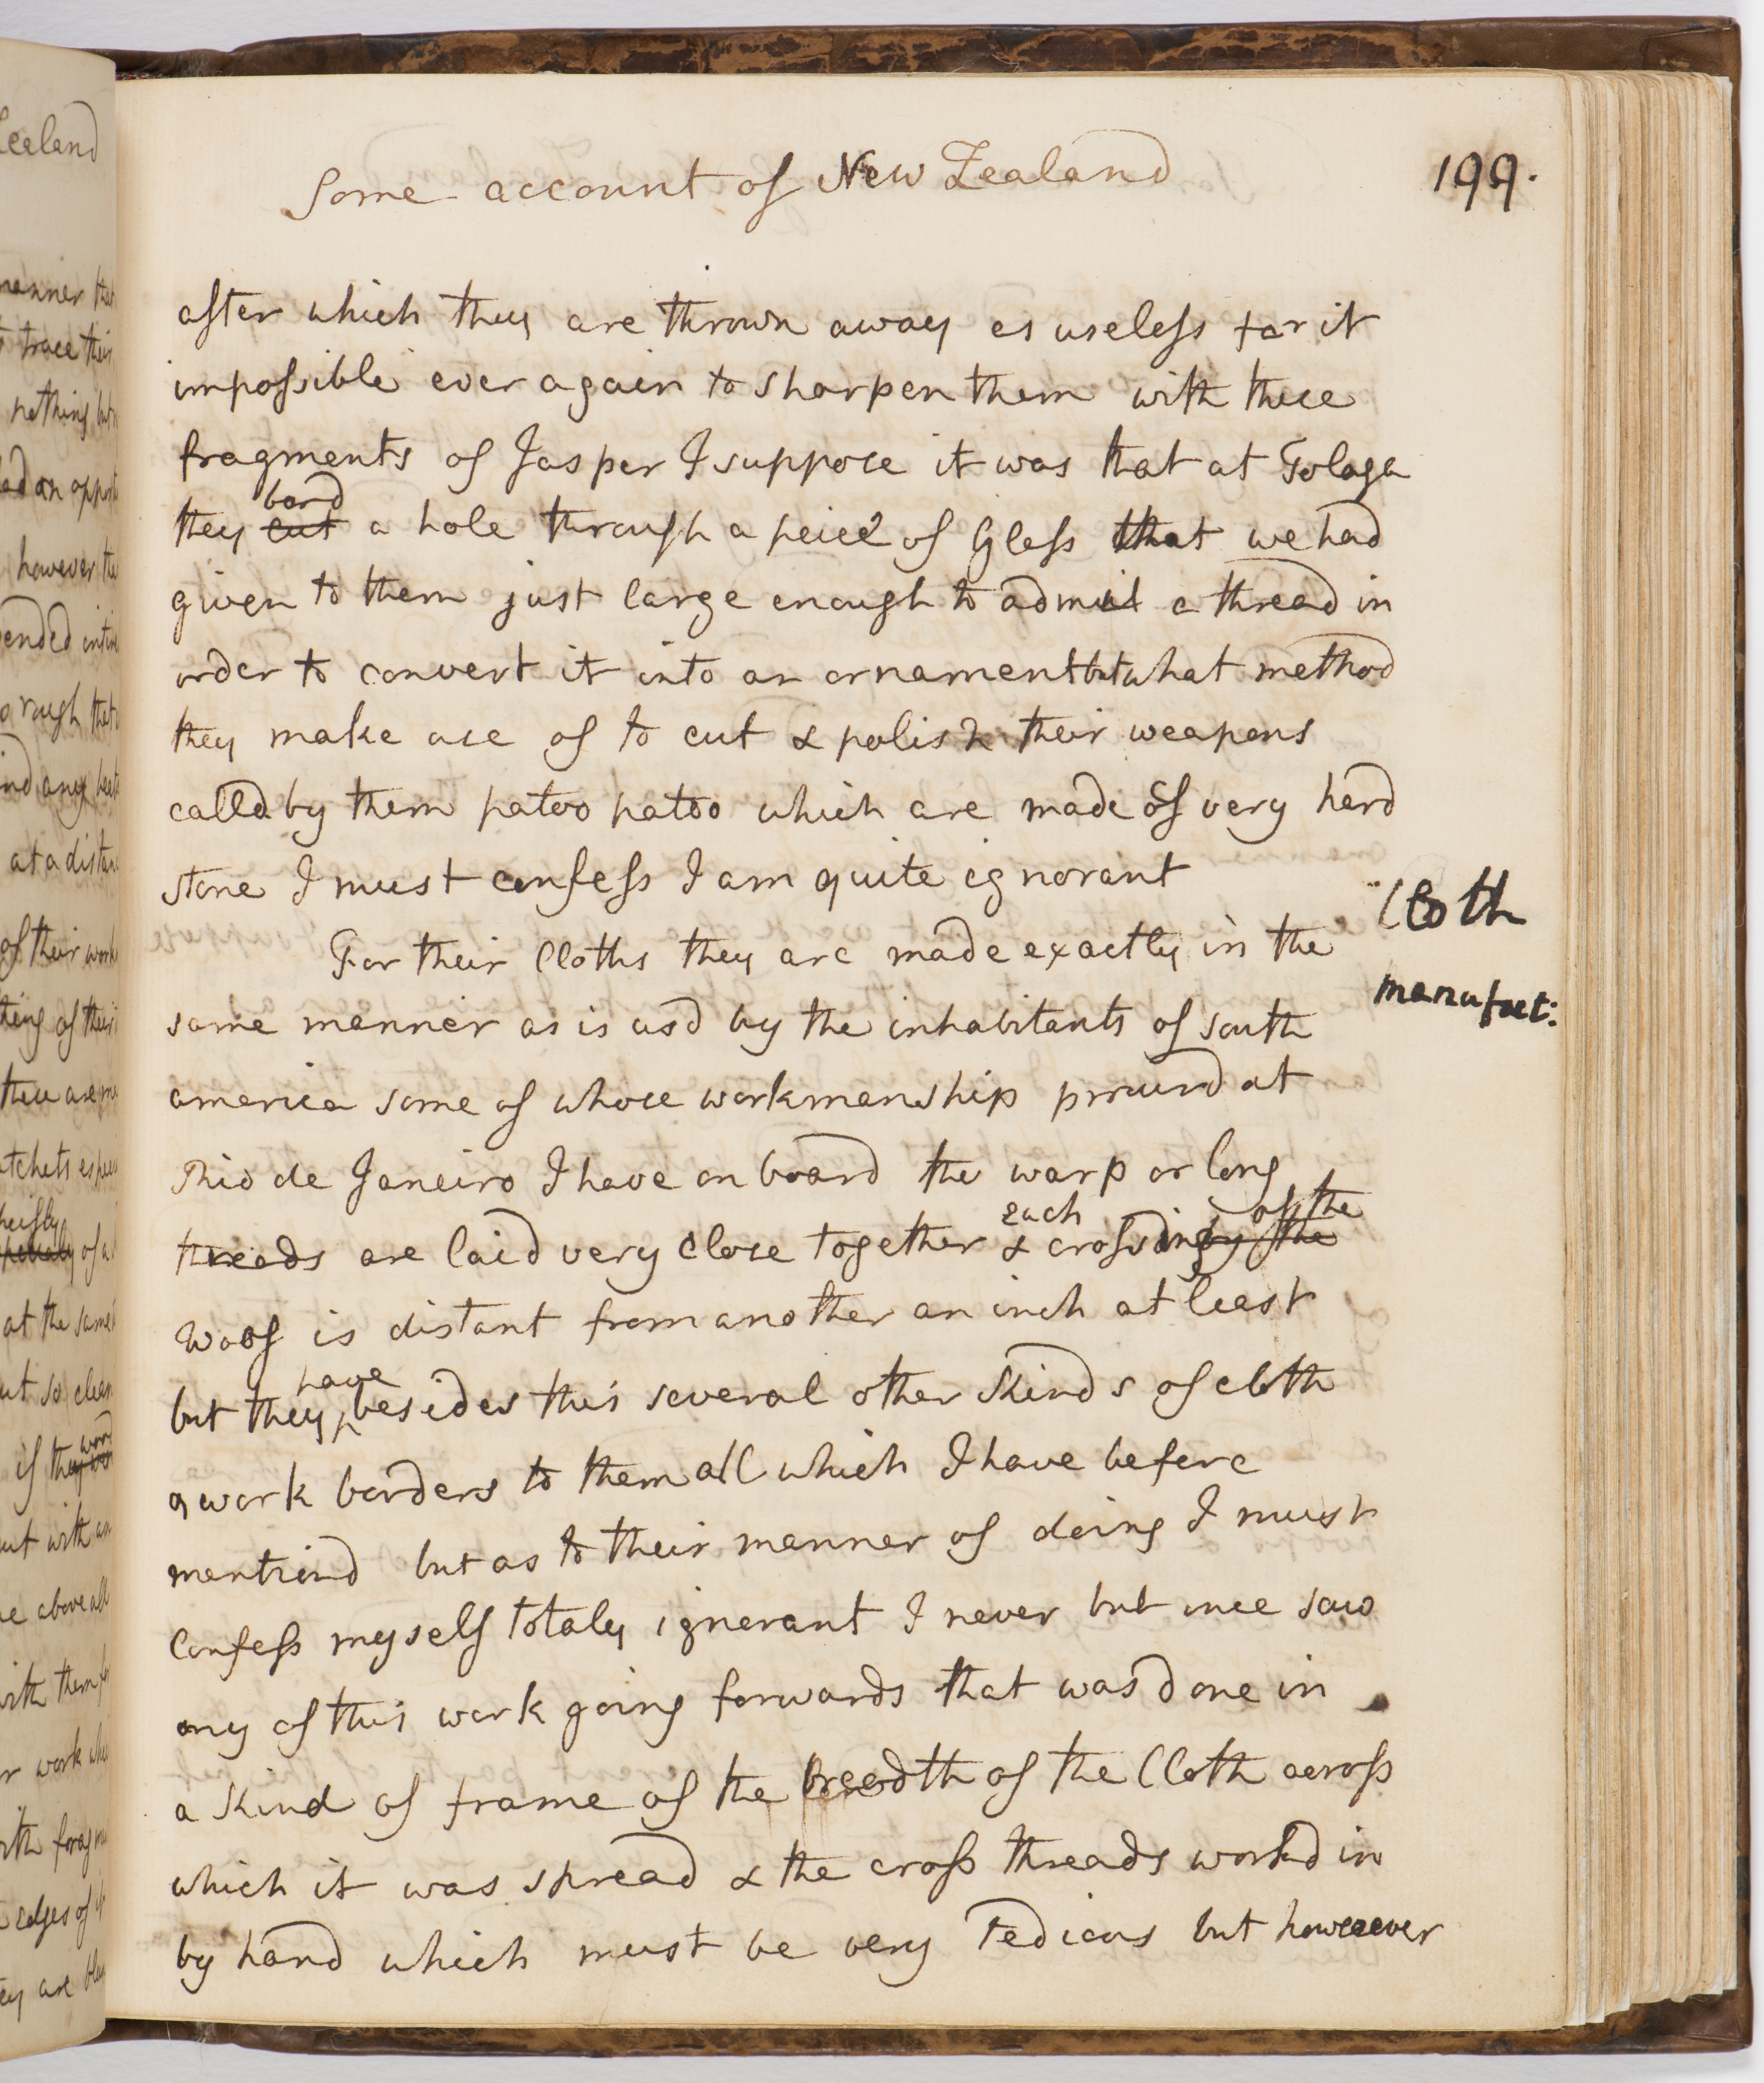 Some account of New Zealand
199.
after which they are thrown away as useless for it
impossible ever again to sharpen them with these
fragments of Jasper I suppose it was that at Tolaga
they bord cut a hole through a peice of Glass that we had
given to them just large enough to admit a thread in
order to convert it into an ornament but what method
they make use of to cut & polish their weapons
calld by them patoo patoo which are made of very hard
stone I must confess I am quite ignorant
Cloth
manufact:
For their Cloths they are made exactly in the
same manner as is usd by the inhabitants of South
america some of whose workmanship procurd at
Rio de Janeiro I have on board the warp or long
threads are laid very close together & each crossing of the by the
woof is distant from another an inch at least
but they have besides this several other kinds of cloth
& work borders to them all which I have before
mentiond but as to their manner of doing I must
Confess myself totaly ignorant I never but once saw
any of this work going forwards that was done in
a kind of frame of the breadth of the Cloth across
which it was spread & the cross threads workd in
by hand which must be very Tedious but however
Zealand
manner
trace their
nothing but
had an
however the
at a distan
of their work
at the same
if they
but with
above all
with them
work
edges of
are